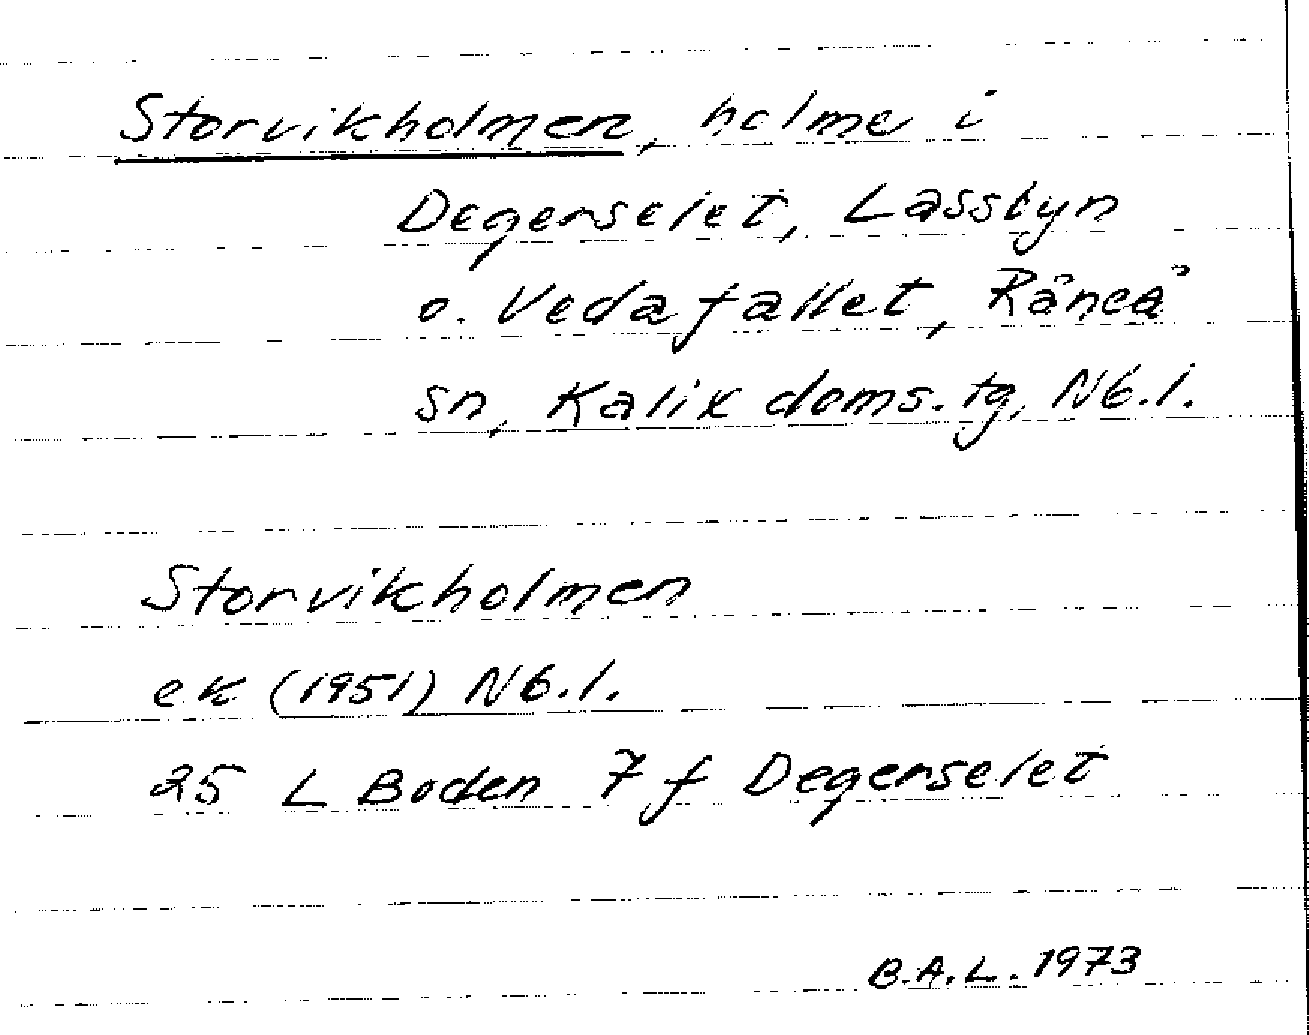 Storvikholmen, holme i
Degerselet, Lassbyn
o. Vedafallet, Råneå
sn, Kalix doms. tg, Nb. l.
Storvikholmen
ek (1951) Nb. l.
25 L Boden 7 f Degerselet
B.A.L. 1973